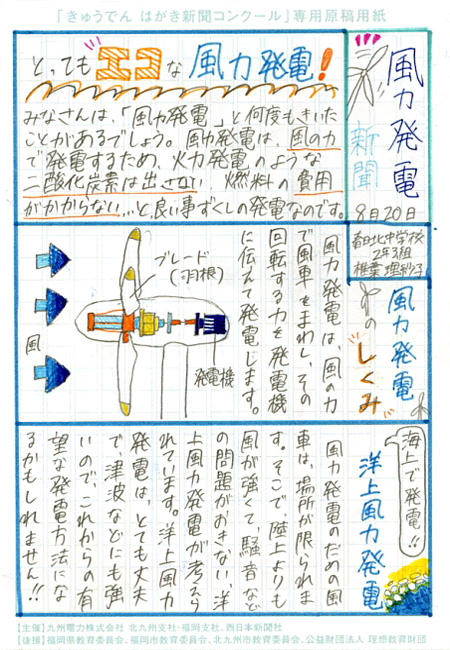 「きゅうでん はがき新聞コンクール」専用原稿用紙
風力発電
新聞
8月20日
春日北中学校
2年3組
とっても エコな 風力発電!
みなさんは、「風力発電」と何度もきいた
ことがあるでしょう。風力発電は、風の力
で発電するため、火力発電のような
二酸化炭素は出さない、燃料の費用
がかからない…と、良い事ずくしの発電なのです。
風力発電
のしくみ
風力発電は、風の力
で風車をまわし、その
回転する力を発電機
に伝えて発電します。
ブレード
(羽根)
発電機
風
海上で発電!!
洋上風力発電
風力発電のための風
車は、場所が限られま
す。そこで、陸上よりも
風が強くて、騒音など
の問題がおきない、洋
上風力発電が考えら
れています。洋上風力
発電は、とても丈夫
で、津波などにも強
いので、これからの有
望な発電方法にな
るかもしれません!!
【主催】九州電力株式会社 北九州支社・福岡支社、西日本新聞社
【後援】福岡県教育委員会、福岡市教育委員会、北九州市教育委員会、公益財団法人 理想教育財団